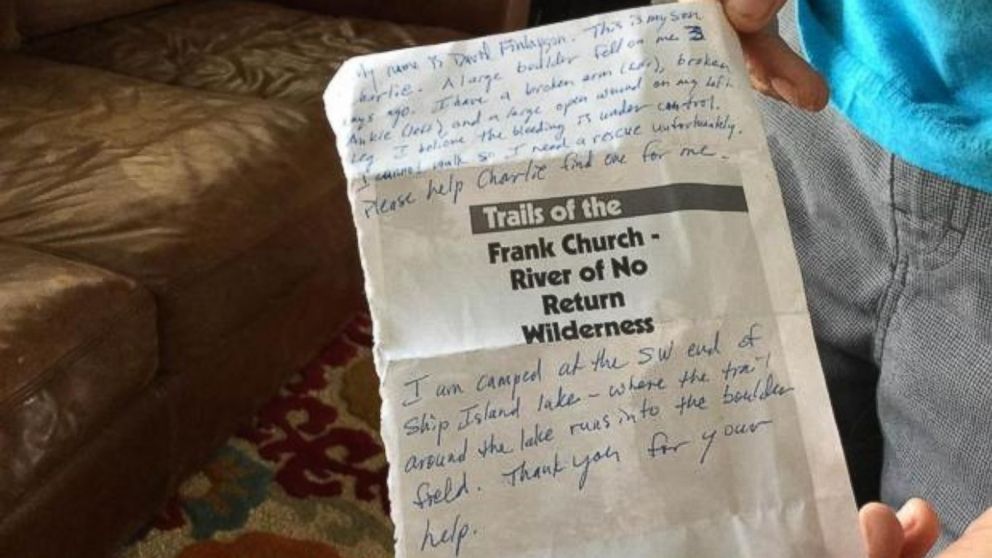 My name is David Finlayson. This is my son
Charlie. A large boulder fell on me 3
days ago. I have a broken arm (left), broken
Ankle (left) and a large open wound on my left
leg. I believe the bleeding is under control.
I cannot walk so I need a rescue unfortunately.
Please help Charlie find one for me.
Trails of the
Frank Church -
River of No
Return
Wilderness
I am camped at the SW end of
Ship Island lake - where the trail
around the lake runs into the boulder
field. Thank you for your
help.